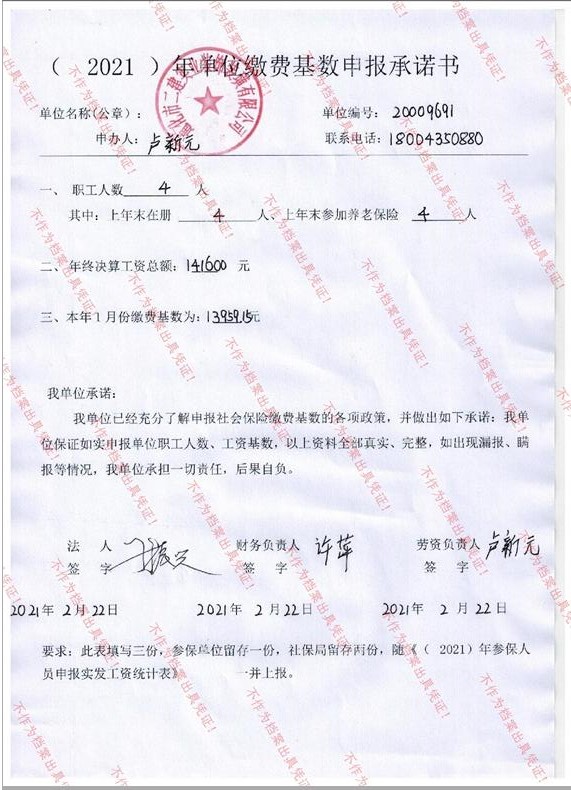 （ 2021 ）年单位缴费基数申报承诺书
单位名称(公章)： 单位编号：20009691
申办人：卢新元 联系电话：18004350880
一、 职工人数 4 人
其中：上年末在册 4 人、上年末参加养老保险 4 人
二、年终决算工资总额：141600 元
三、本年1月份缴费基数为：13959.15元
我单位承诺：
我单位已经充分了解申报社会保险缴费基数的各项政策，并做出如下承诺：我单
位保证如实申报单位职工人数、工资基数，以上资料全部真实、完整，如出现漏报、瞒
报等情况，我单位承担一切责任，后果自负。
法 人 财务负责人 许萍 劳资负责人 卢新元
签 字 签 字 签 字
2021年 2月 22日 2021年 2月 22日 2021年 2月 22日
要求：此表填写三份，参保单位留存一份，社保局留存两份，随《（ 2021）年参保人
员申报实发工资统计表》 一并上报。
不作为档案出具凭证！